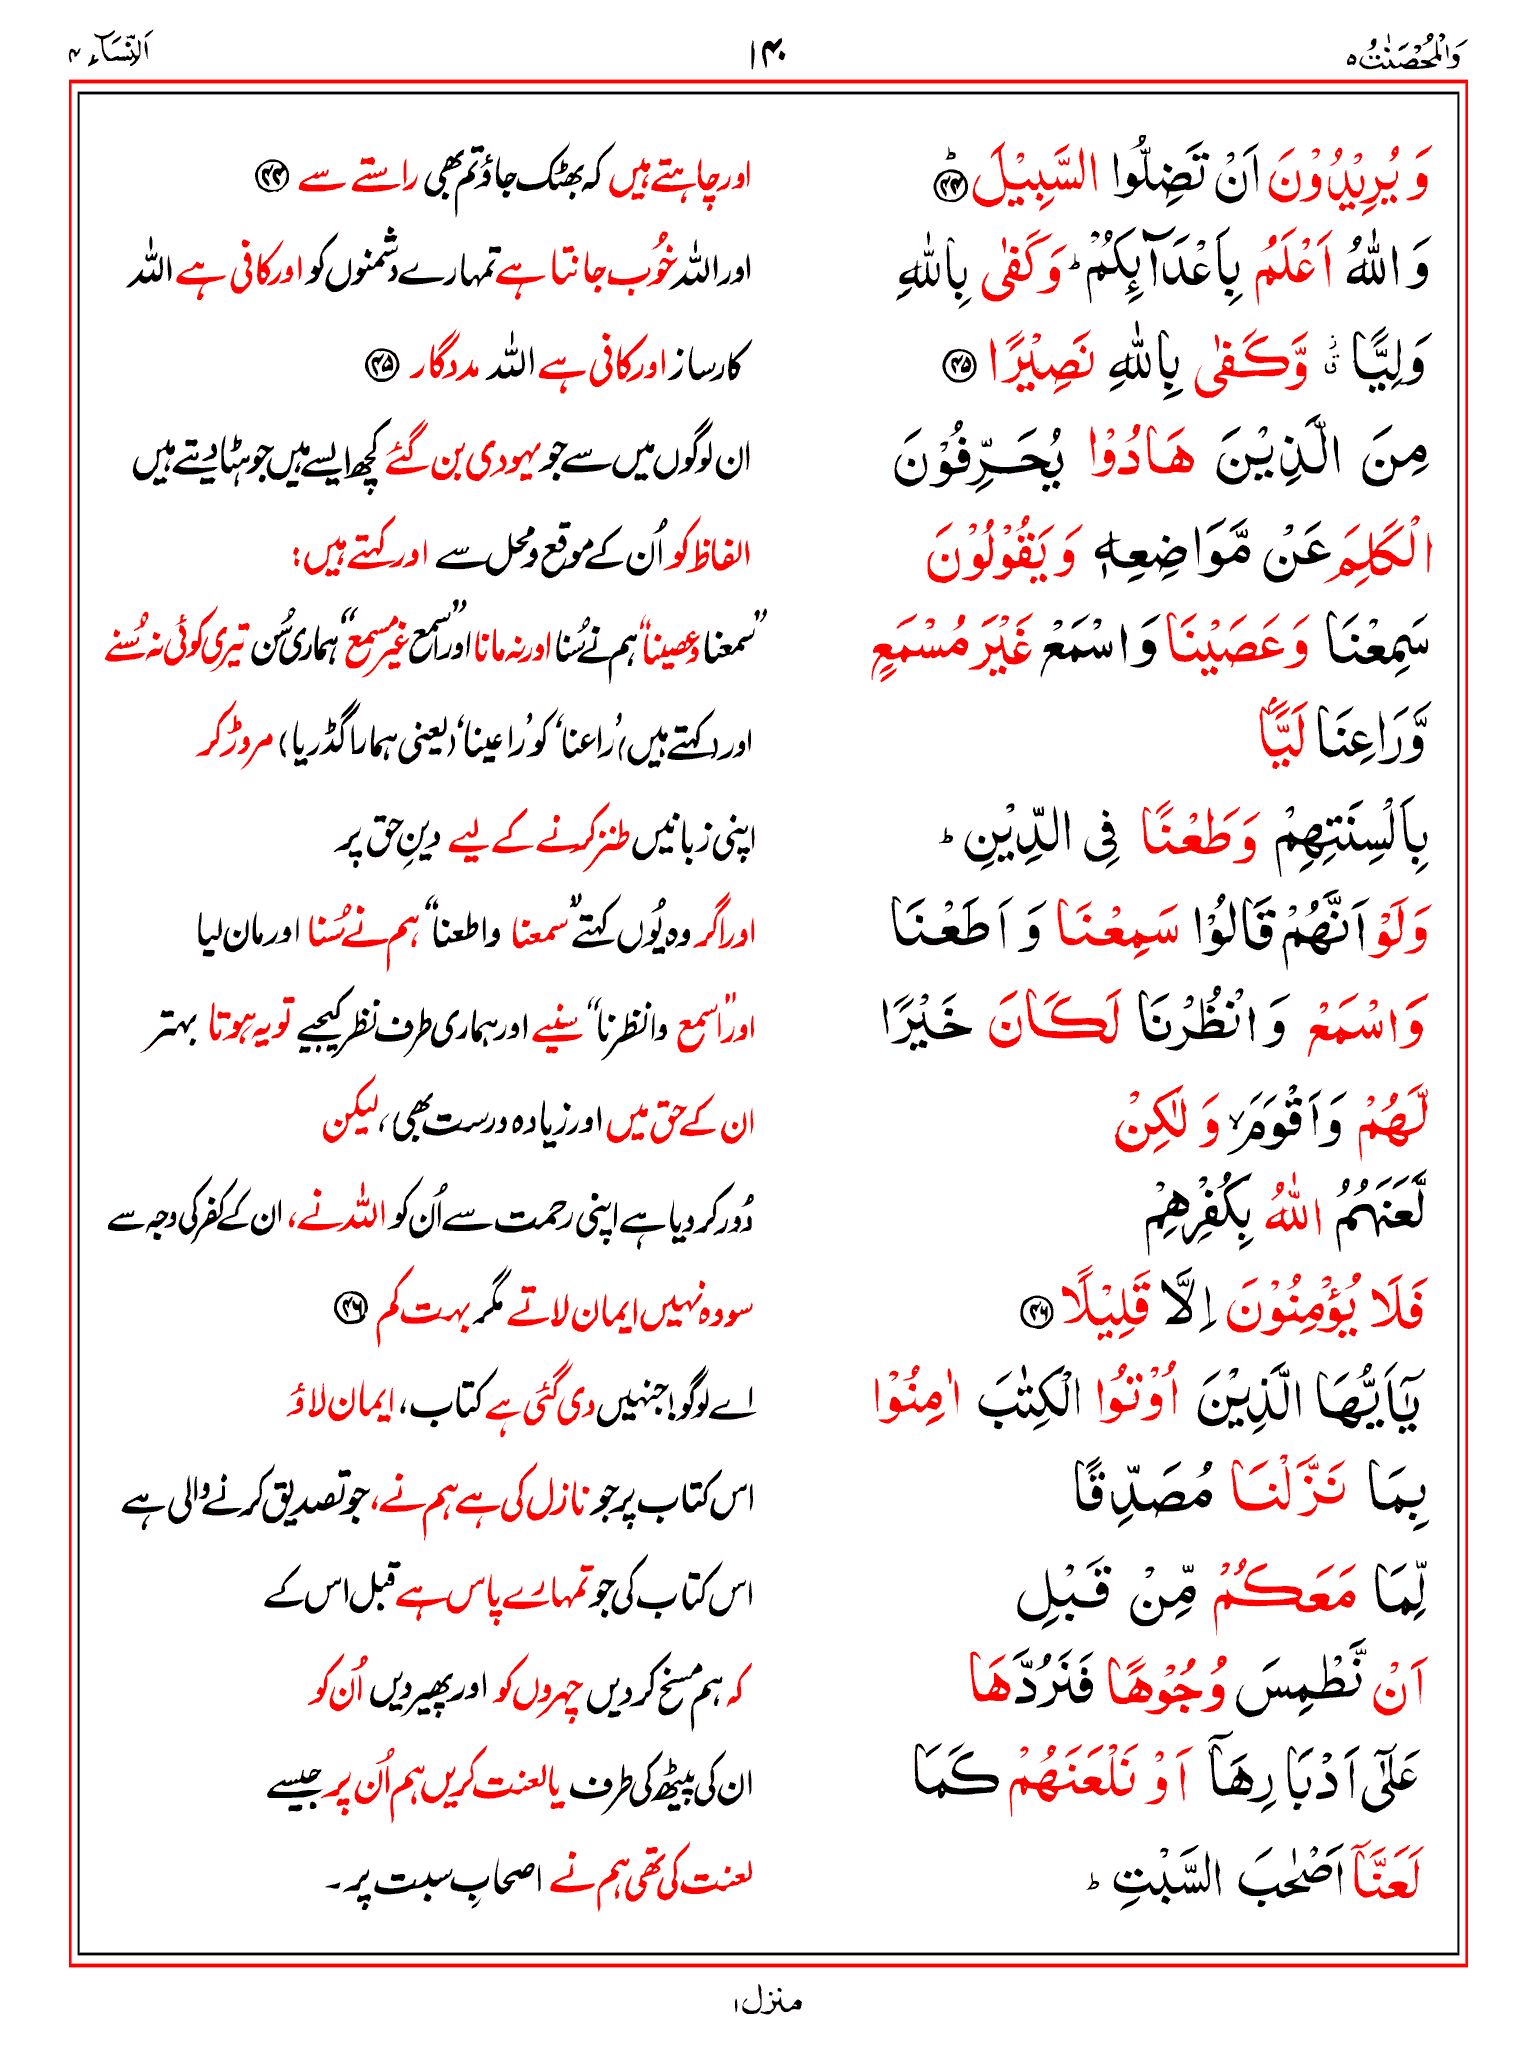 وَالْمُحْصَنٰتُ ۵
۱۴۰
اَلنِّسَآء ۴
وَ یُرِیْدُوْنَ اَنْ تَضِلُّوا السَّبِیْلَ ؕ﴿۴۴﴾
اور چاہتے ہیں کہ بھٹک جاؤ تم بھی راستے سے ﴿۴۴﴾
وَ اللّٰهُ اَعْلَمُ بِاَعْدَآئِكُمْ ؕ وَ كَفٰی بِاللّٰهِ
اور اللہ خُوب جانتا ہے تمہارے دشمنوں کو اور کافی ہے اللہ
وَلِیًّا ۙ٘ وَّ كَفٰی بِاللّٰهِ نَصِیْرًا ﴿۴۵﴾
کارساز اور کافی ہے اللہ مددگار ﴿۴۵﴾
مِنَ الَّذِیْنَ هَادُوْا یُحَرِّفُوْنَ
ان لوگوں میں سے جو یہودی بن گئے کچھ ایسے ہیں جو ہٹا دیتے ہیں
الْكَلِمَ عَنْ مَّوَاضِعِهٖ وَ یَقُوْلُوْنَ
الفاظ کو اُن کے موقع و محل سے اور کہتے ہیں:
سَمِعْنَا وَ عَصَیْنَا وَ اسْمَعْ غَیْرَ مُسْمَعٍ
”سمعنا وعصینا“ ہم نے سُنا اور نہ مانا اور ”اسمع غیر مسمع“ ہماری سُن تیری کوئی نہ سُنے
وَّ رَاعِنَا لَیًّۢا
اور (کہتے ہیں) ’رُاعنا‘ کو ’رُاعینا‘ (یعنی ہمارا گڈریا) مروڑ کر
بِاَلْسِنَتِهِمْ وَ طَعْنًا فِی الدِّیْنِ ؕ
اپنی زبانیں طنز کرنے کے لیے دینِ حق پر
وَ لَوْ اَنَّهُمْ قَالُوْا سَمِعْنَا وَ اَطَعْنَا
اور اگر وہ یُوں کہتے ”سمعنا واطعنا“ ہم نے سُنا اور مان لیا
وَ اسْمَعْ وَ انْظُرْنَا لَكَانَ خَیْرًا
اور ”اسمع وانظرنا“ سنیے اور ہماری طرف نظر کیجیے تو یہ ہوتا بہتر
لَّهُمْ وَ اَقْوَمَ ۙ وَ لٰكِنْ
ان کے حق میں اور زیادہ درست بھی، لیکن
لَّعَنَهُمُ اللّٰهُ بِكُفْرِهِمْ
دُور کر دیا ہے اپنی رحمت سے اُن کو اللہ نے، ان کے کفر کی وجہ سے
فَلَا یُؤْمِنُوْنَ اِلَّا قَلِیْلًا ﴿۴۶﴾
سو وہ نہیں ایمان لاتے مگر بہت کم ﴿۴۶﴾
یٰۤاَیُّهَا الَّذِیْنَ اُوْتُوا الْكِتٰبَ اٰمِنُوْا
اے لوگو! جنہیں دی گئی ہے کتاب، ایمان لاؤ
بِمَا نَزَّلْنَا مُصَدِّقًا
اس کتاب پر جو نازل کی ہے ہم نے، جو تصدیق کرنے والی ہے
لِّمَا مَعَكُمْ مِّنْ قَبْلِ
اس کتاب کی جو تمہارے پاس ہے قبل اس کے
اَنْ نَّطْمِسَ وُجُوْهًا فَنَرُدَّهَا
کہ ہم مسخ کر دیں چہروں کو اور پھیر دیں اُن کو
عَلٰۤی اَدْبَارِهَاۤ اَوْ نَلْعَنَهُمْ كَمَا
ان کی پیٹھ کی طرف یا لعنت کریں ہم اُن پر جیسے
لَعَنَّاۤ اَصْحٰبَ السَّبْتِ ؕ
لعنت کی تھی ہم نے اصحابِ سبت پر۔
منزل ۱